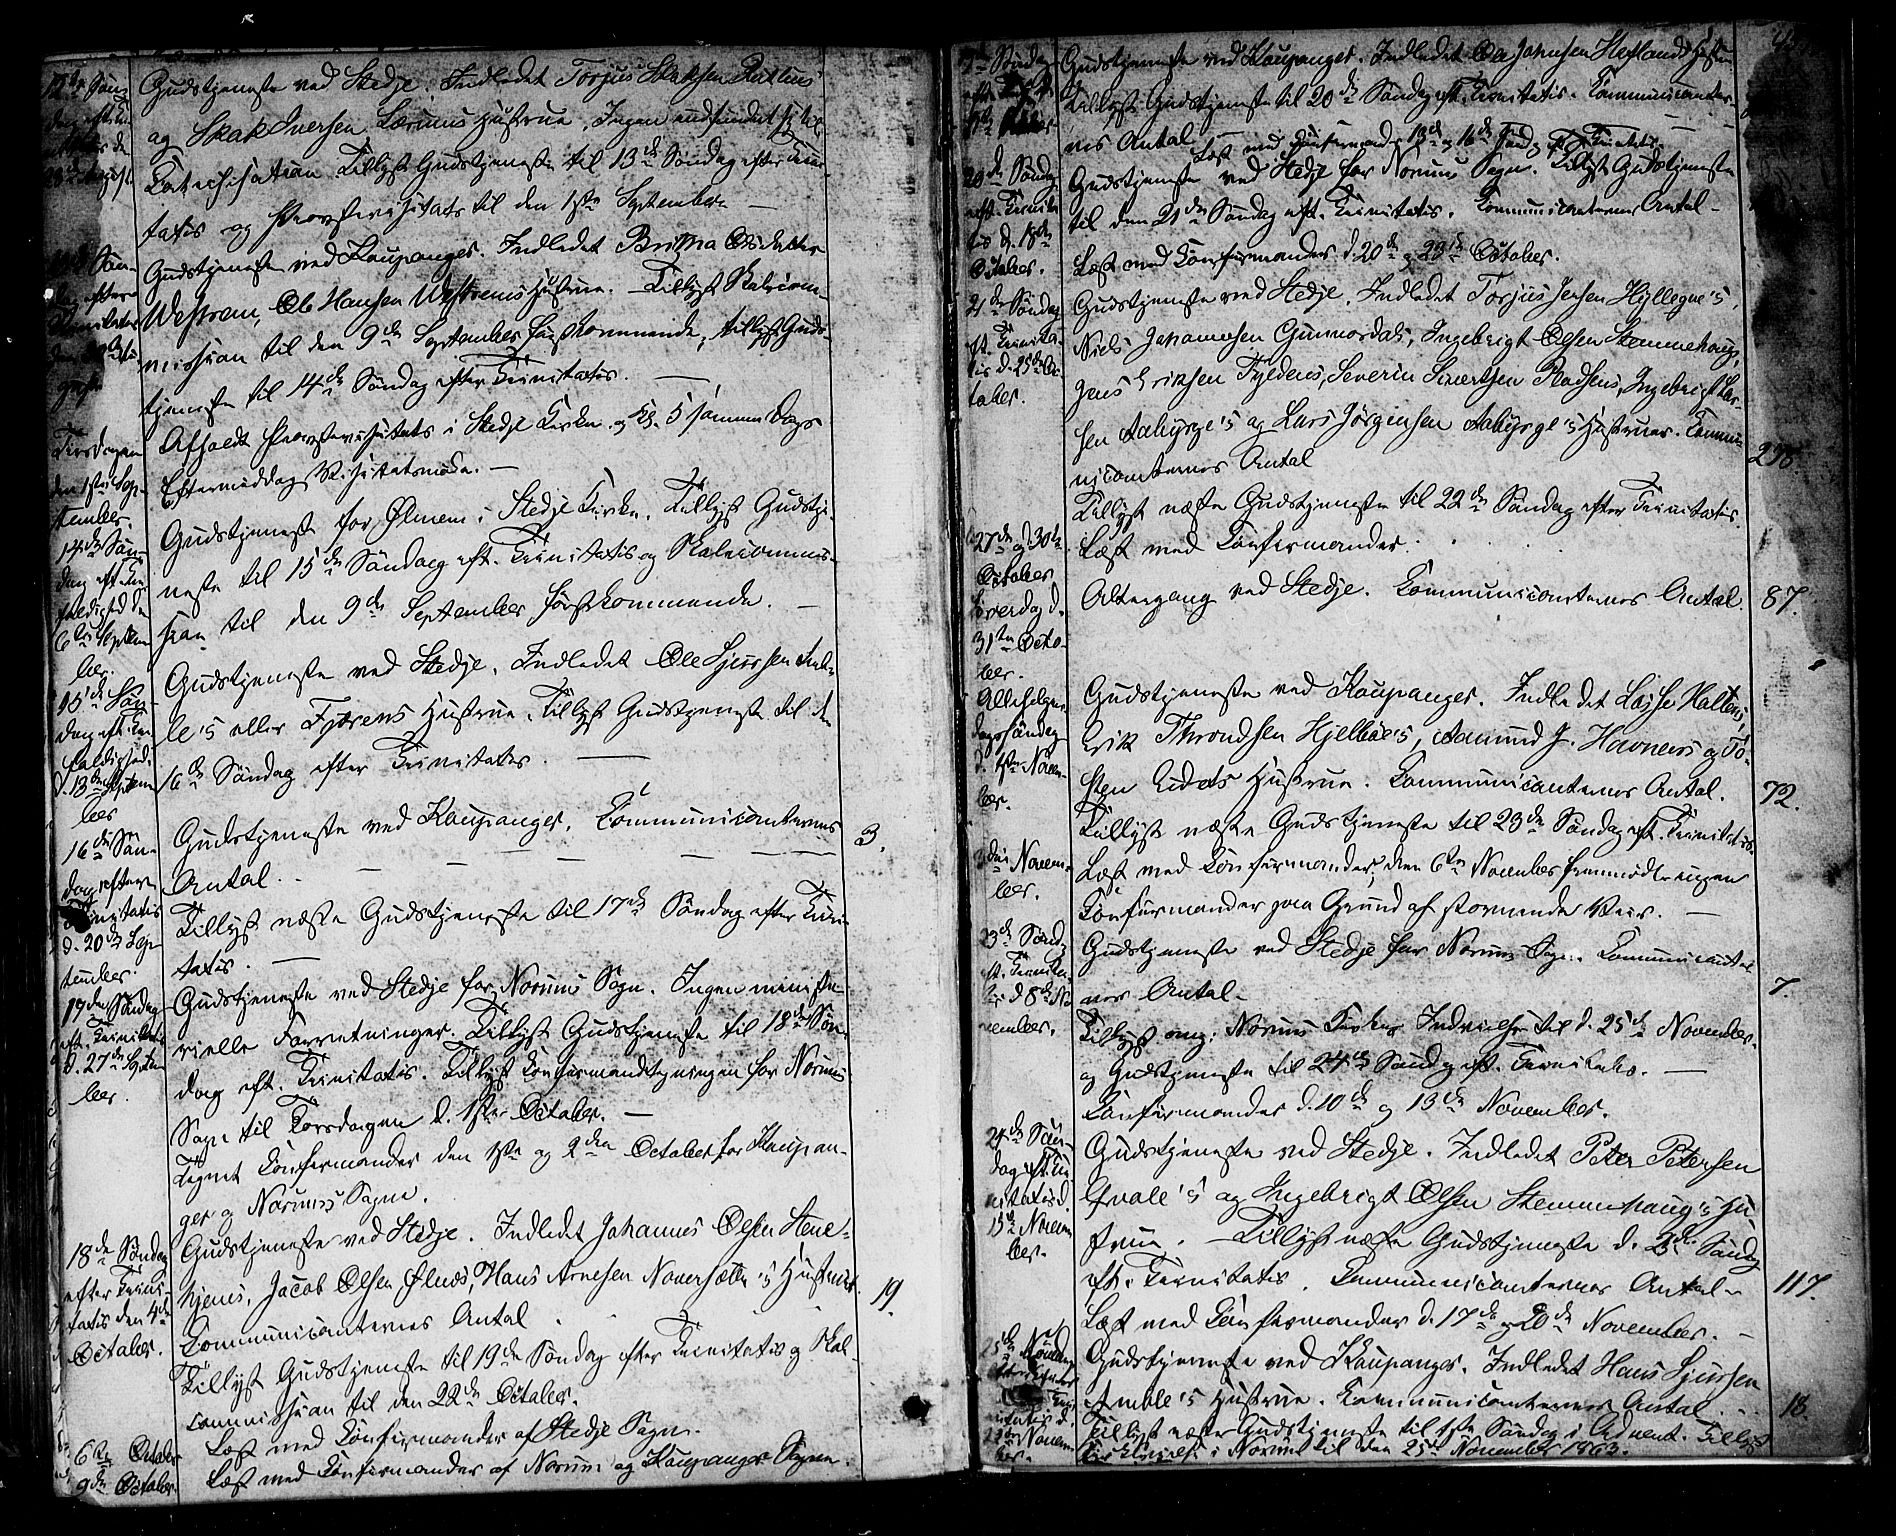 12te Søn-
dag efter
23de August.
Gudstjeneste ved Stedje. Indledet Torjus
og Skak Iversen Lærums Hustrue. Ingen
Catechisation. Tillyst Gudstjeneste til 13de Søndag efter Trini-
tatis og Provstevisitats til den 1ste September. —
Søn-
dag efter
Trinitatis
Gudstjeneste ved Kaupanger. Indledet Britha
Westrem, Ole Hansen Westrems Hustrue. Tillyst Skolecom-
mission til den 9de September førstkommende, tillyst Guds-
tjeneste til 14de Søndag efter Trinitatis. —
Tirsdagen
den 1ste Sep-
tember.
Afholdt Provstevisitats i Stedje Kirke og Kl. 5 samme Dags
Eftermiddag Visitatsmøde. —
14de Søn-
dag eft. Tre-
foldighed den
6te Septem-
ber.
Gudstjeneste for Ølmem i Stedje Kirke. Tillyst Gudstje-
neste til 15de Søndag eft. Trinitatis og Skolecommis-
sion til den 9de September førstkommende. —
15de Søn-
dag eft. Tre-
foldighed
d. 13de Septem-
ber
Gudstjeneste ved Stedje. Indledet Ole Sjursen Amb-
le's eller Fjærens Hustrue. Tillyst Gudstjeneste til den
16de Søndag efter Trinitatis. —
16de Søn-
dag efter
Trinitatis
d. 20de Sep-
tember.
Gudstjeneste ved Kaupanger. Communicanternes
Antal. — — — — 3.
Tillyst næste Gudstjeneste til 17de Søndag efter Trini-
tatis. —
17de Søndag
eft. Trinitatis
d. 27de Septem-
ber.
Gudstjeneste ved Stedje for Norums Sogn. Ingen ministe-
rielle Forretninger. Tillyst Gudstjeneste til 18de Søn-
dag eft. Trinitatis. Tillyst Confirmandtegningen for Norums
Sogn til Torsdagen d. 1ste October. —
Tegnet Confirmander den 1ste og 2den October for Kaupan-
ger og Norums Sogne.
18de Søndag
efter Trini-
tatis den 4de
October.
Gudstjeneste ved Stedje. Indledet Johannes Olsen Stene-
hjems, Jacob Olsen Ølnæs, Hans Arnesen Navarsætte's Hustruer.
Communicanternes Antal 19.
Tillyst Gudstjeneste til 19de Søndag efter Trinitatis og Skol-
commission til den 22de October.
6te October
Læst med Confirmander af Stedje Sogn.
9de October.
Læst med Confirmander af Norum og Kaupanger Sogne.
Søndag
Gudstjeneste ved Kaupanger. Indledet Ole Johnsen
Tillyst Gudstjeneste til 20de Søndag eft. Trinitatis. Communicanter-
nes Antal — —
Læst med Confirmander 13de og 16de
20de Søndag
eft. Trinita-
tis d. 18de
October.
Gudstjeneste ved Stedje for Norums Sogn. Tillyst Gudstjeneste
til den 21de Søndag eft. Trinitatis. Communicanternes Antal —
Læst med Confirmander d. 20de og 23de October.
21de Søndag
eft. Trinita-
tis d. 25de Oc-
tober.
Gudstjeneste ved Stedje. Indledet Torjus Jensen Hyllegne's,
Niels Johannesen Gunvordals, Ingebrigt Olsen Stemmehaugs,
Jens Eriksen Fyldens, Severin Sivertsen Pladsens, Ingebrigt Lar-
sen Aabyrge's og Lars Jørgensen Aabyrge's Hustruer. Commu-
nicanternes Antal 278.
Tillyst næste Gudstjeneste til 22de Søndag efter Trinitatis.
27de og 30te
October
Læst med Confirmander.
Løverdag d.
31te Octo-
ber.
Altergang ved Stedje. Communicanternes Antal 87.
Allehelgen-
dagssøndag
d. 1ste Novem-
ber.
Gudstjeneste ved Kaupanger. Indledet Lasse Haltens,
Erik Throndsen Hjelbøe's, Aamund J. Havnens og To-
sten Eidets Hustrue. Communicanternes Antal. 72.
Tillyst næste Gudstjeneste til 23de Søndag eft. Trinitatis.
3die Novem-
ber.
Læst med Confirmander, den 6te November fremmødte ingen
Confirmander paa Grund af stormende Veir. —
23de Sønd.
eft. Trinita-
tis d 8de No-
vember.
Gudstjeneste ved Stedje for Norums Sogn. Communicanter-
nes Antal — 7.
Tillyst ang: Norums Kirkes Indvielse til d. 25de November.
og Gudstjeneste til 24de Søndag eft. Trinitatis. —
Confirmander d. 10de og 13de November.
24de Søn-
dag eft. Tri-
nitatis d.
15de Novem-
ber.
Gudstjeneste ved Stedje. Indledet Peter Petersen
Qvale's og Ingebrigt Olsen Stemmehaug's Hu-
strue. Tillyst næste Gudstjeneste d. 25de Søndag
eft. Trinitatis. Communicanternes Antal — 117.
Læst med Confirmander d. 17de og 20de November. —
25de Søndag
November.
Gudstjeneste ved Kaupanger. Indledet Hans Sjursen
Amble's Hustrue. Communicanternes Antal 18.
Tillyst næste Gudstjeneste til 1ste Søndag i Advent. Tillyst
Kirkevielse i Norum til den 25de November 1863.